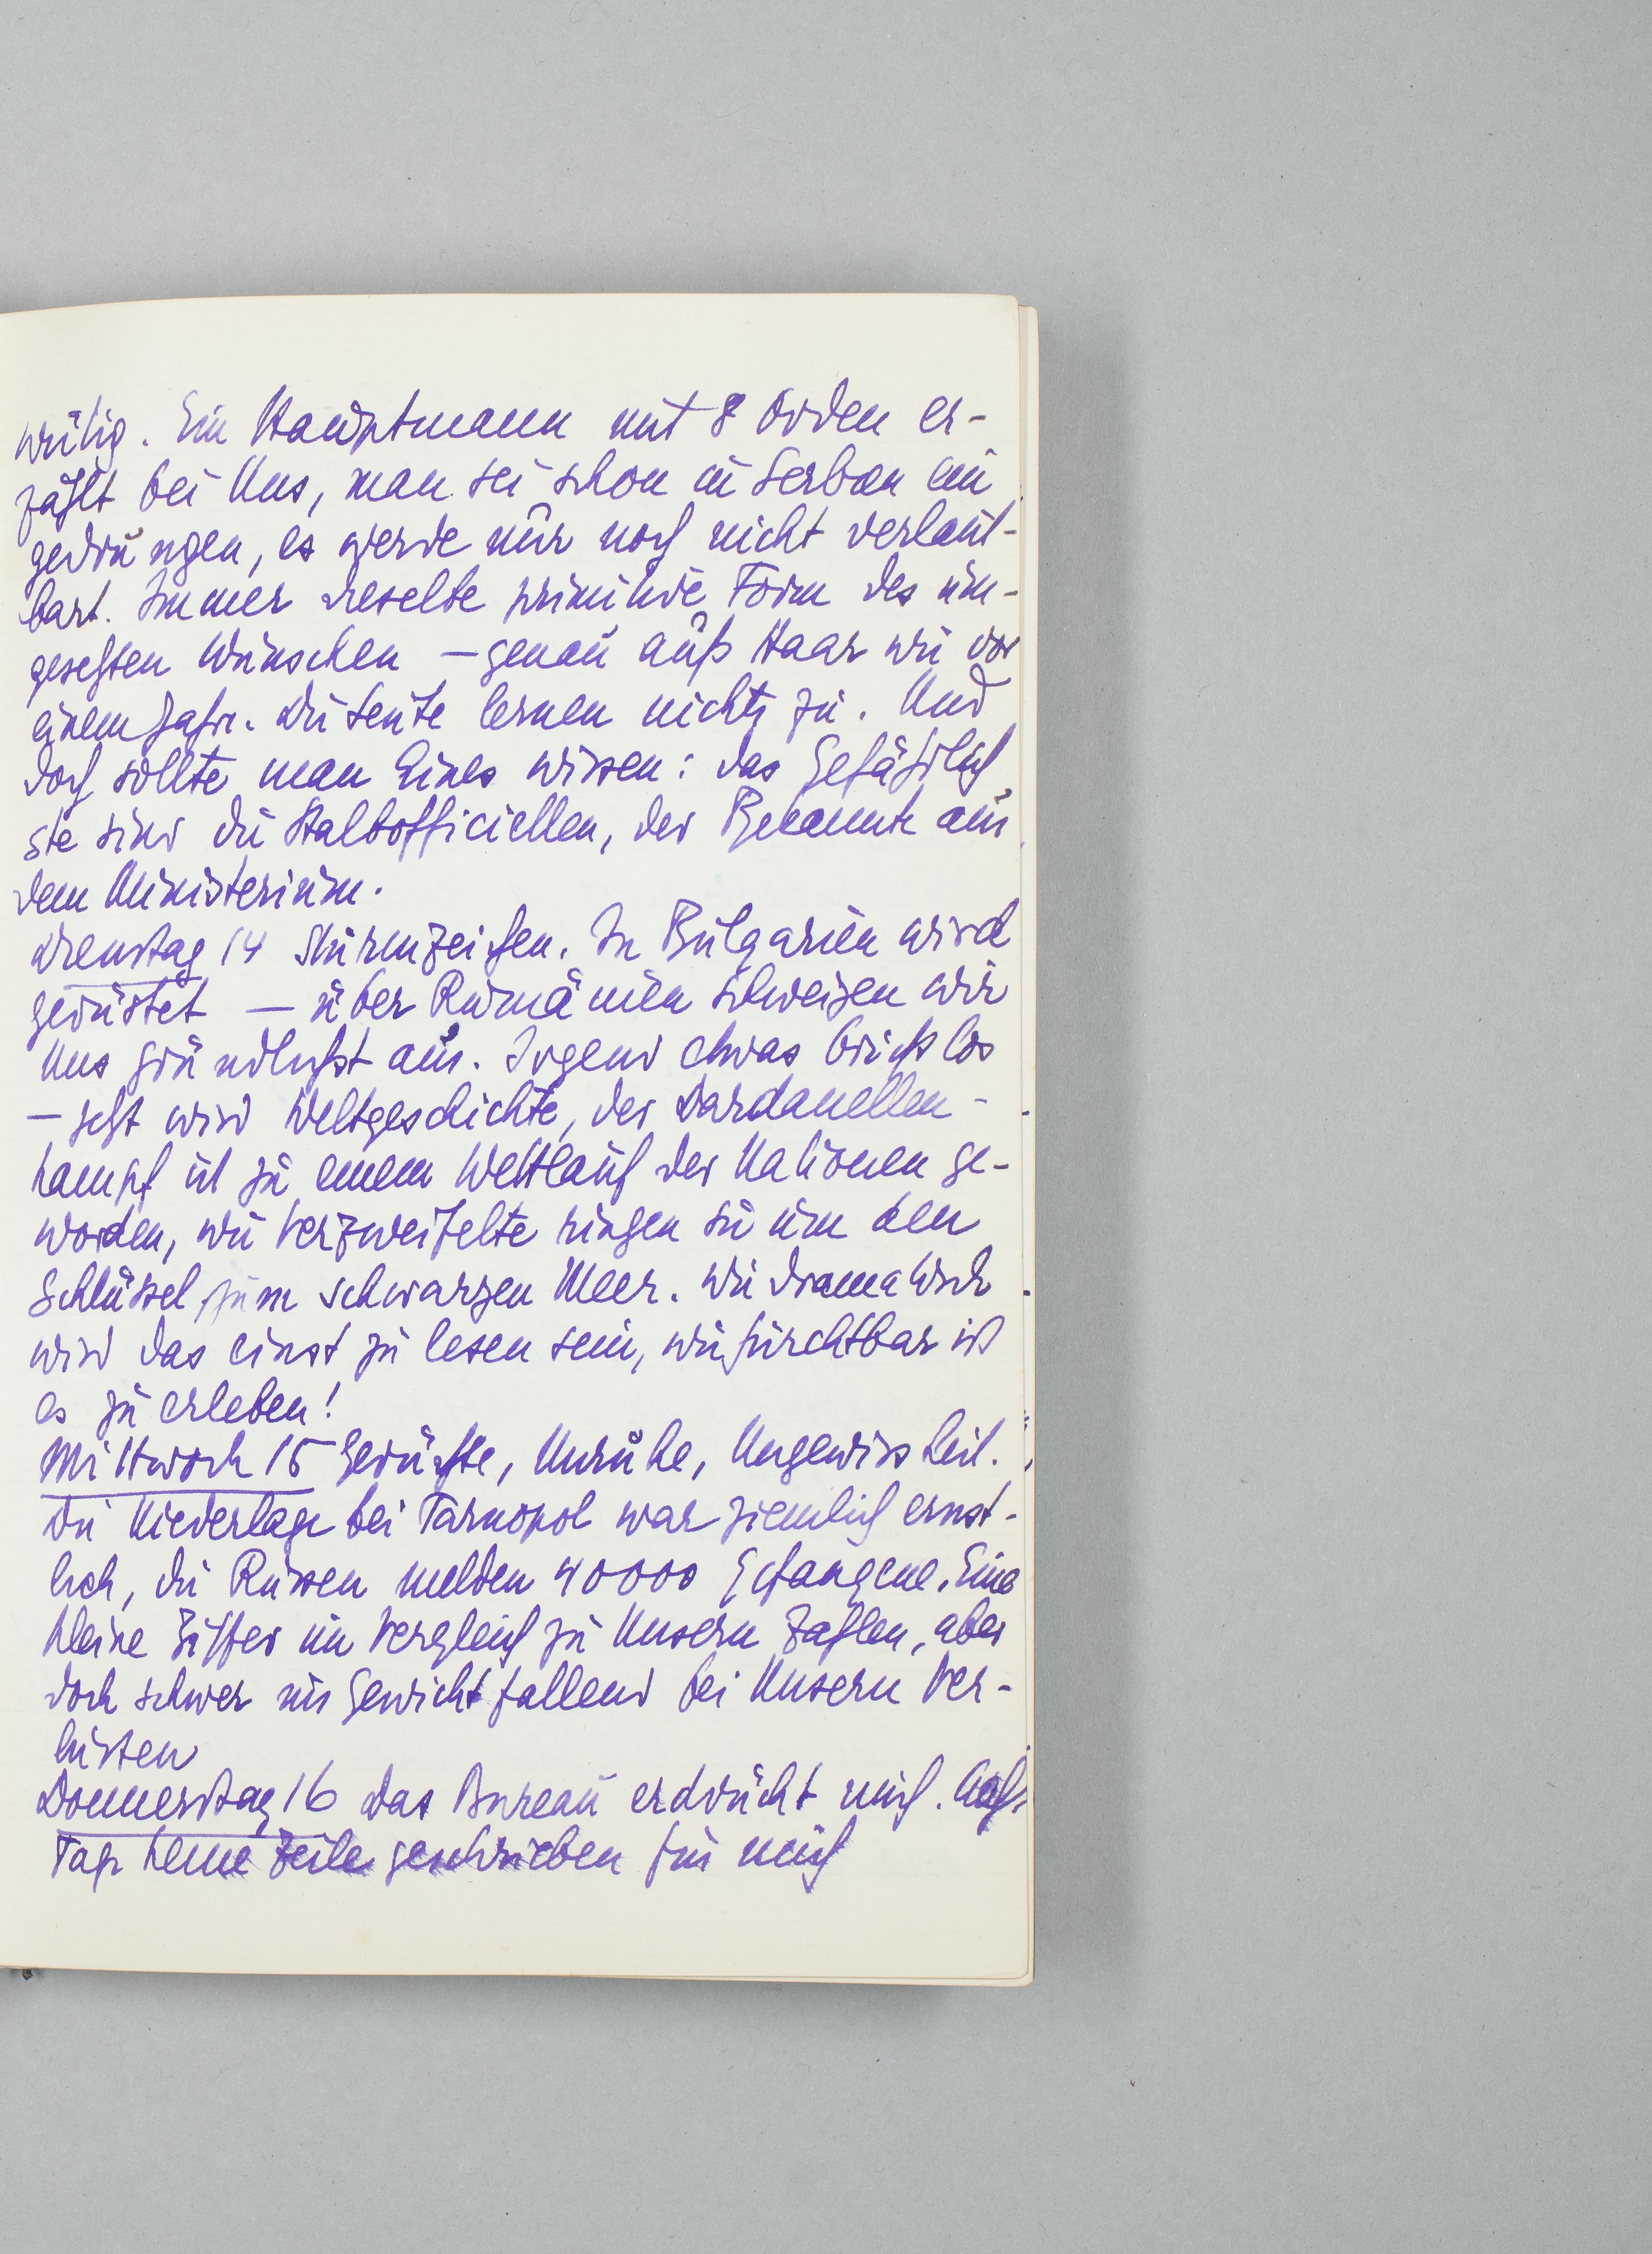 wütig. Ein Hauptmann mit 8 Orden er-
zählt bei Uns, man sei schon in Serbien ein
gedrungen, es werde nur noch nicht verlaut-
bart. Immer dieselbe primitive Form des um-
gesetzten Wünschen — genau aufs Haar wie vor
einem Jahr. Die Leute lernen nichts zu. Und
doch sollte man Eines wissen: das Gefährlich
ste sind die Halbofficiellen, der Bekannte aus
dem Ministerium.
Dienstag 14 Sturmzeichen. In Bulgarien wird
gerüstet — über Rumänien schweigen wir
uns gründlichst aus. Irgend etwas bricht los
— jetzt wird Weltgeschichte, der Dardanellen-
kampf ist zu einem Wettlauf der Nationen ge-
worden, wie Verzweifelte ringen sie um den
Schlüssel zum schwarzen Meer. Wie dramatisch
wird das einst zu lesen sein, wie furchtbar ist
es zu erleben!
Mittwoch 15 Gerüchte, Unruhe, Ungewissheit.
Die Niederlage bei Tarnopol war ziemlich ernst-
lich, die Russen melden 40000 Gefangene. Eine
kleine Ziffer im Vergleich zu Unsern Zahlen, aber
doch schwer ins Gewicht fallend bei Unsern Ver-
lusten
Donnerstag 16 Das Bureau erdrückt mich. Acht
Tage keine Zeile geschrieben für mich